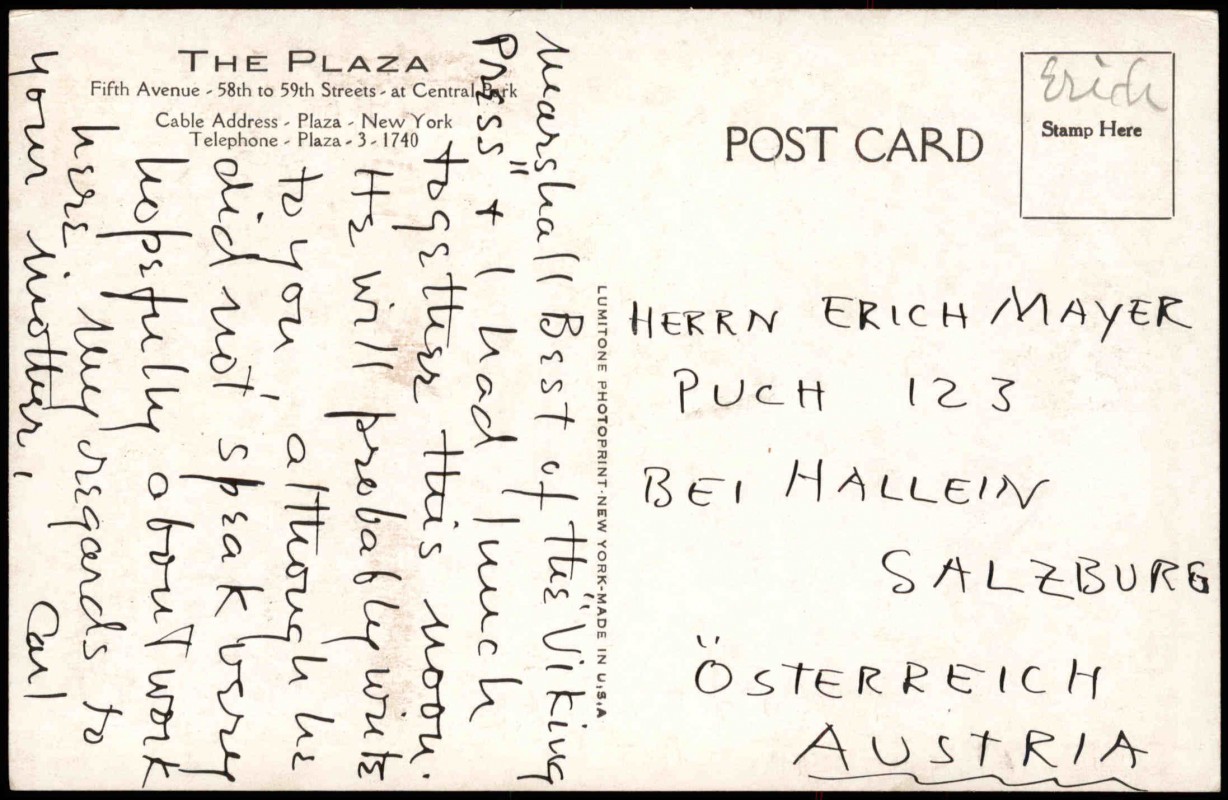 THE PLAZA
Fifth Avenue - 58th to 59th Streets - at Central Park
Cable Address - Plaza - New York
Telephone - Plaza - 3 - 1740
Marshall Best of the "Viking
Press" + I had lunch
together this noon.
He will probably write
to you, although he
did not speak very
hopefully about work
here. My regards to
your mother, Carl
LUMITONE PHOTOPRINT-NEW YORK-MADE IN U.S.A
POST CARD
Erich
Stamp Here
HERRN ERICH MAYER
PUCH 123
BEI HALLEIN
SALZBURG
ÖSTERREICH
AUSTRIA